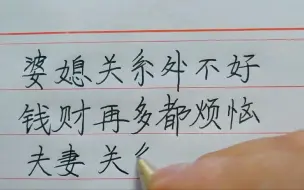 婆媳关系处不好
钱财再多都烦恼
夫妻关